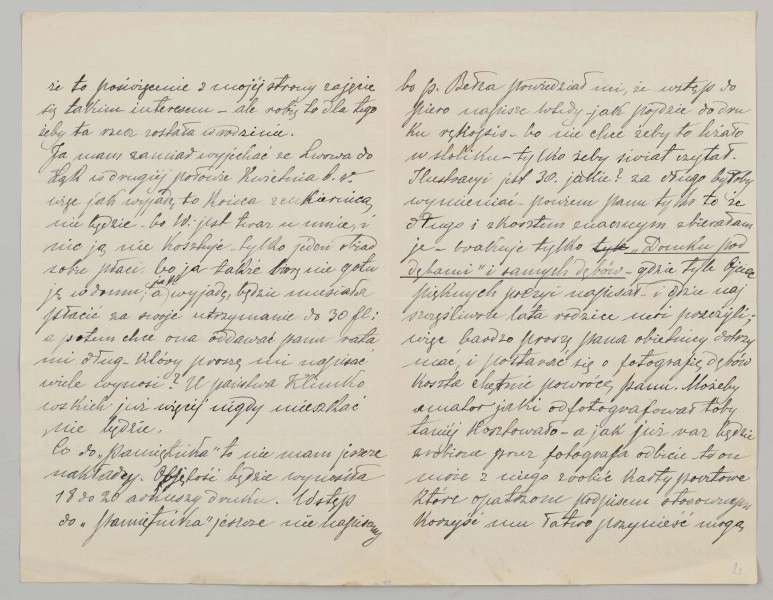 że to poświęcenie z mojéj strony zajęcie
się takim interesem – ale robię to dla tego
żeby ta rzecz została w rodzinie.
Ja mam zamiar wyjechać ze Lwowa do
w drugiej połowie Kwietnia b. r.
więc jak wyjadę to końca
nie będzie – bo W. jest teraz u mnie, i
nic ją nie kosztuje – tylko jeden obiad
sobie płaci. bo ja także nie gotu
ję w domu; a jak wyjadę, będzie musiała
płacić za swoje utrzymanie do 30 fl:
a potem chce ona oddawać panu rata
mi dług – który proszę mi napisać
wiele wynosi? U państwa Klimko
wskich już więcéj nigdy mieszkać
nie będzie.
Co do „Pamiętnika" to nie mam jeszcze
nakładcy. Objętość będzie wynosiła
18 do 20 arkuszy druku. Wstęp
do „Pamiętnika" jeszcze nie napisany
bo p. Bełza powiedział mi, że wstęp do
piero napisze wtedy jak pójdzie do dru
ku rękopis – bo nie chce żeby to leżało
w stoliku – tylko żeby świat czytał.
Ilustracyi jest 30. jakie? za długo byłoby
wymieniać – powiem panu tylko to że
długo i z kosztem znacznym zbierałam
je – brakuje tylko „Domku pod
dębami" i samych dębów – gdzie tyle Ojciec
pięknych poezyi napisał – i gdzie naj
szczęśliwsze lata rodzice moi przeżyli;
więc bardzo proszę pana obietnicy dotrzy
mać, i postarać się o fotografię dębów
koszta chętnie powrócę panu. Możeby
amator jaki odfotografował toby
taniéj kosztowało – a jak już raz będzie
zrobione przez fotografa odbicie – to on
może z niego zrobić karty pocztowe
które opatrzone podpisem stosownym
korzyść mu łatwo przynieść mogą